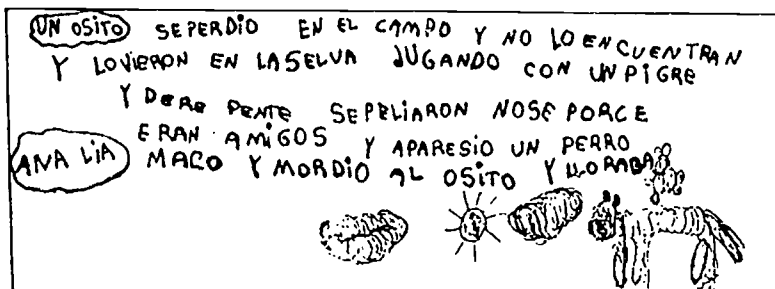 UN OSITO SEPERDIO EN EL CAMPO Y NO LO ENCUENTRAN
Y LOVIERON EN LASELVA JUGANDO CON UN PIGRE
Y DERE PENTE SEPELIARON NOSE PORCE
ERAN AMIGOS Y APARESIO UN PERRO
MALO Y MORDIO AL OSITO Y LLORABA
ANA LIA